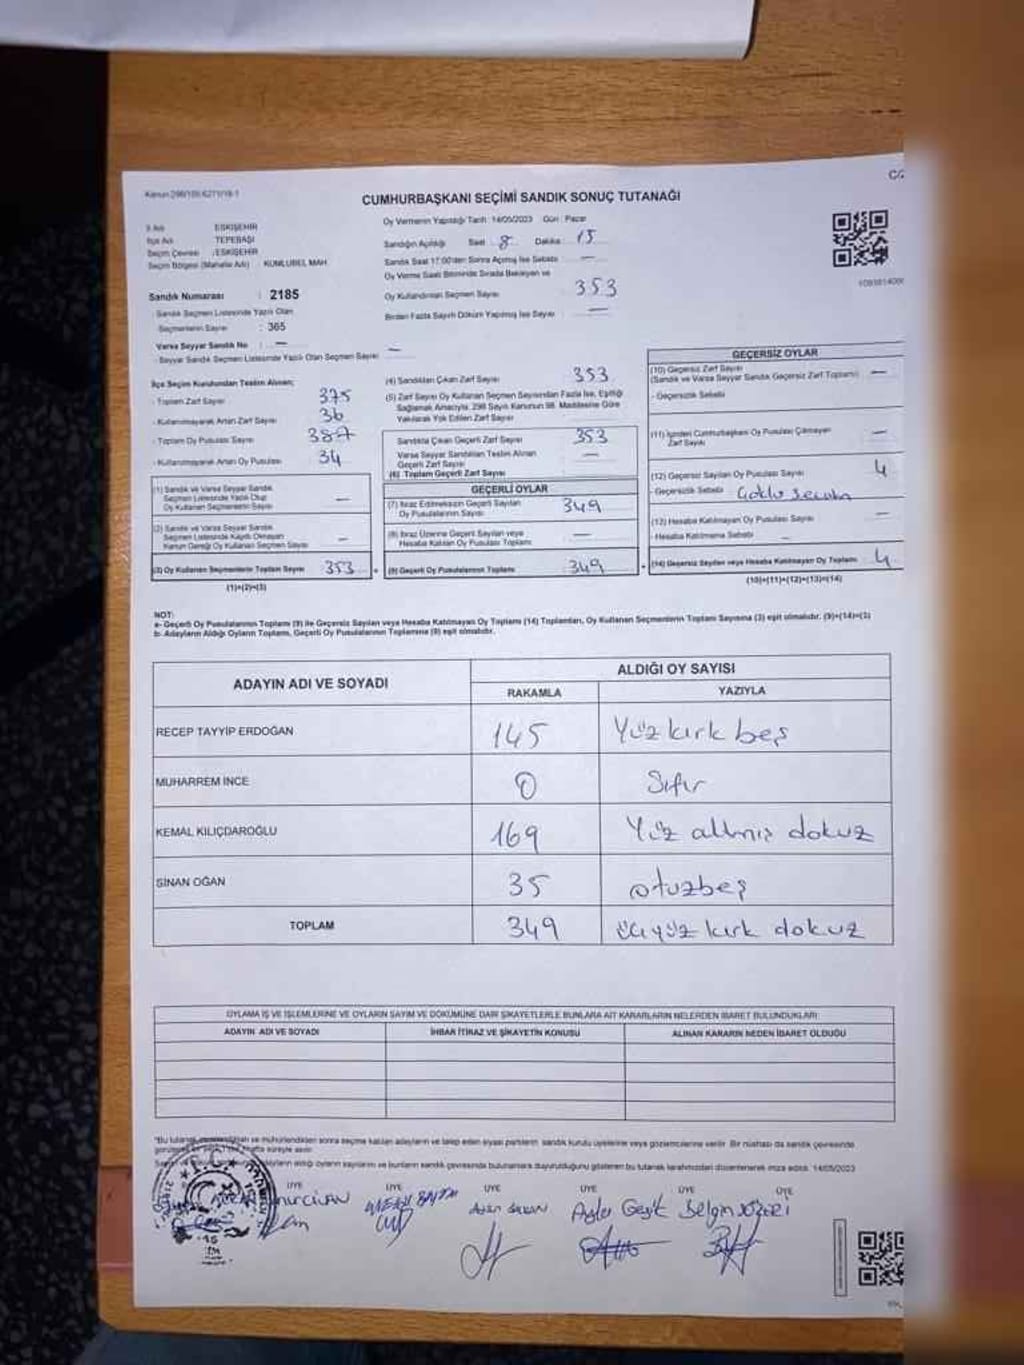 Kanun 298/105 6271/18-1
CUMHURBAŞKANI SEÇİMİ SANDIK SONUÇ TUTANAĞI
İl Adı : ESKİŞEHİR
İlçe Adı : TEPEBAŞI
Seçim Çevresi : ESKİŞEHİR
Seçim Bölgesi (Mahalle Adı) : KUMLUBEL MAH.
Sandık Numarası : 2185
- Sandık Seçmen Listesinde Yazılı Olan
Seçmenlerin Sayısı : 365
Varsa Seyyar Sandık No : —
- Seyyar Sandık Seçmen Listesinde Yazılı Olan Seçmen Sayısı —
Oy Vermenin Yapıldığı Tarih : 14/05/2023 Gün : Pazar
Sandığın Açıldığı Saat 8 Dakika : 15
Sandık Saat 17:00'den Sonra Açılmış İse Sebebi —
Oy Verme Saati Bitiminde Sırada Bekleyen ve
Oy Kullandırılan Seçmen Sayısı 353
Birden Fazla Sayım Döküm Yapılmış İse Sayısı —
İlçe Seçim Kurulundan Teslim Alınan;
- Toplam Zarf Sayısı 375
- Kullanılmayarak Artan Zarf Sayısı 36
- Toplam Oy Pusulası Sayısı 387
- Kullanılmayarak Artan Oy Pusulası 34
(1) Sandık ve Varsa Seyyar Sandık
Seçmen Listesinde Yazılı Olup
Oy Kullanan Seçmen Sayısı —
(2) Sandık ve Varsa Seyyar Sandık
Seçmen Listesinde Kayıtlı Olmayan
Kanun Gereği Oy Kullanan Seçmen Sayısı —
(3) Oy Kullanan Seçmenlerin Toplam Sayısı 353
(1)+(2)=(3)
(4) Sandıktan Çıkan Zarf Sayısı 353
(5) Zarf Sayısı Oy Kullanan Seçmen Sayısından Fazla İse, Eşitliği
Sağlamak Amacıyla, 298 Sayılı Kanunun 98. Maddesine Göre
Yakılarak Yok Edilen Zarf Sayısı
Sandıkta Çıkan Geçerli Zarf Sayısı 353
Varsa Seyyar Sandıktan Teslim Alınan
Geçerli Zarf Sayısı —
(6) Toplam Geçerli Zarf Sayısı
GEÇERLİ OYLAR
(7) İtiraz Edilmeksizin Geçerli Sayılan
Oy Pusulalarının Sayısı 349
(8) İtiraz Üzerine Geçerli Sayılan veya
Hesaba Katılan Oy Pusulası Toplamı —
(9) Geçerli Oy Pusulalarının Toplamı 349
GEÇERSİZ OYLAR
(10) Geçersiz Zarf Sayısı
(Sandık ve Varsa Seyyar Sandık Geçersiz Zarf Toplamı) —
- Geçersizlik Sebebi
(11) İçinden Cumhurbaşkanı Oy Pusulası Çıkmayan
Zarf Sayısı —
(12) Geçersiz Sayılan Oy Pusulası Sayısı 4
- Geçersizlik Sebebi
(13) Hesaba Katılmayan Oy Pusulası Sayısı —
- Hesaba Katılmama Sebebi —
(14) Geçersiz Sayılan veya Hesaba Katılmayan Oy Toplamı 4
(10)+(11)+(12)+(13)=(14)
NOT:
a- Geçerli Oy Pusulalarının Toplamı (9) ile Geçersiz Sayılan veya Hesaba Katılmayan Oy Toplamı (14) Toplamları, Oy Kullanan Seçmenlerin Toplam Sayısına (3) eşit olmalıdır. (9)+(14)=(3)
b- Adayların Aldığı Oyların Toplamı, Geçerli Oy Pusulalarının Toplamına (9) eşit olmalıdır.
ADAYIN ADI VE SOYADI ALDIĞI OY SAYISI
RAKAMLA YAZIYLA
RECEP TAYYİP ERDOĞAN 145 Yüz kırk beş
MUHARREM İNCE 0 Sıfır
KEMAL KILIÇDAROĞLU 169 Yüz altmış dokuz
SİNAN OĞAN 35 otuzbeş
TOPLAM 349 üçyüz kırk dokuz
OYLAMA İŞ VE İŞLEMLERİNE VE OYLARIN SAYIM VE DÖKÜMÜNE DAİR ŞİKAYETLERLE BUNLARA AİT KARARLARIN NELERDEN İBARET BULUNDUKLARI
ADAYIN ADI VE SOYADI İHBAR İTİRAZ VE ŞİKAYETİN KONUSU ALINAN KARARIN NEDEN İBARET OLDUĞU
sonra seçime katılan adayların ve talep eden siyasi partilerin sandık kurulu üyelerine veya gözlemcilerine verilir. Bir nüshası da sandık çevresinde
aldığı oyların sayılarını ve bunların sandık çevresinde bulunanlara duyurulduğunu gösteren bu tutanak tarafımızdan düzenlenerek imza edildi. 14/05/2023
ÜYE ÜYE ÜYE ÜYE ÜYE ÜYE
Belgin